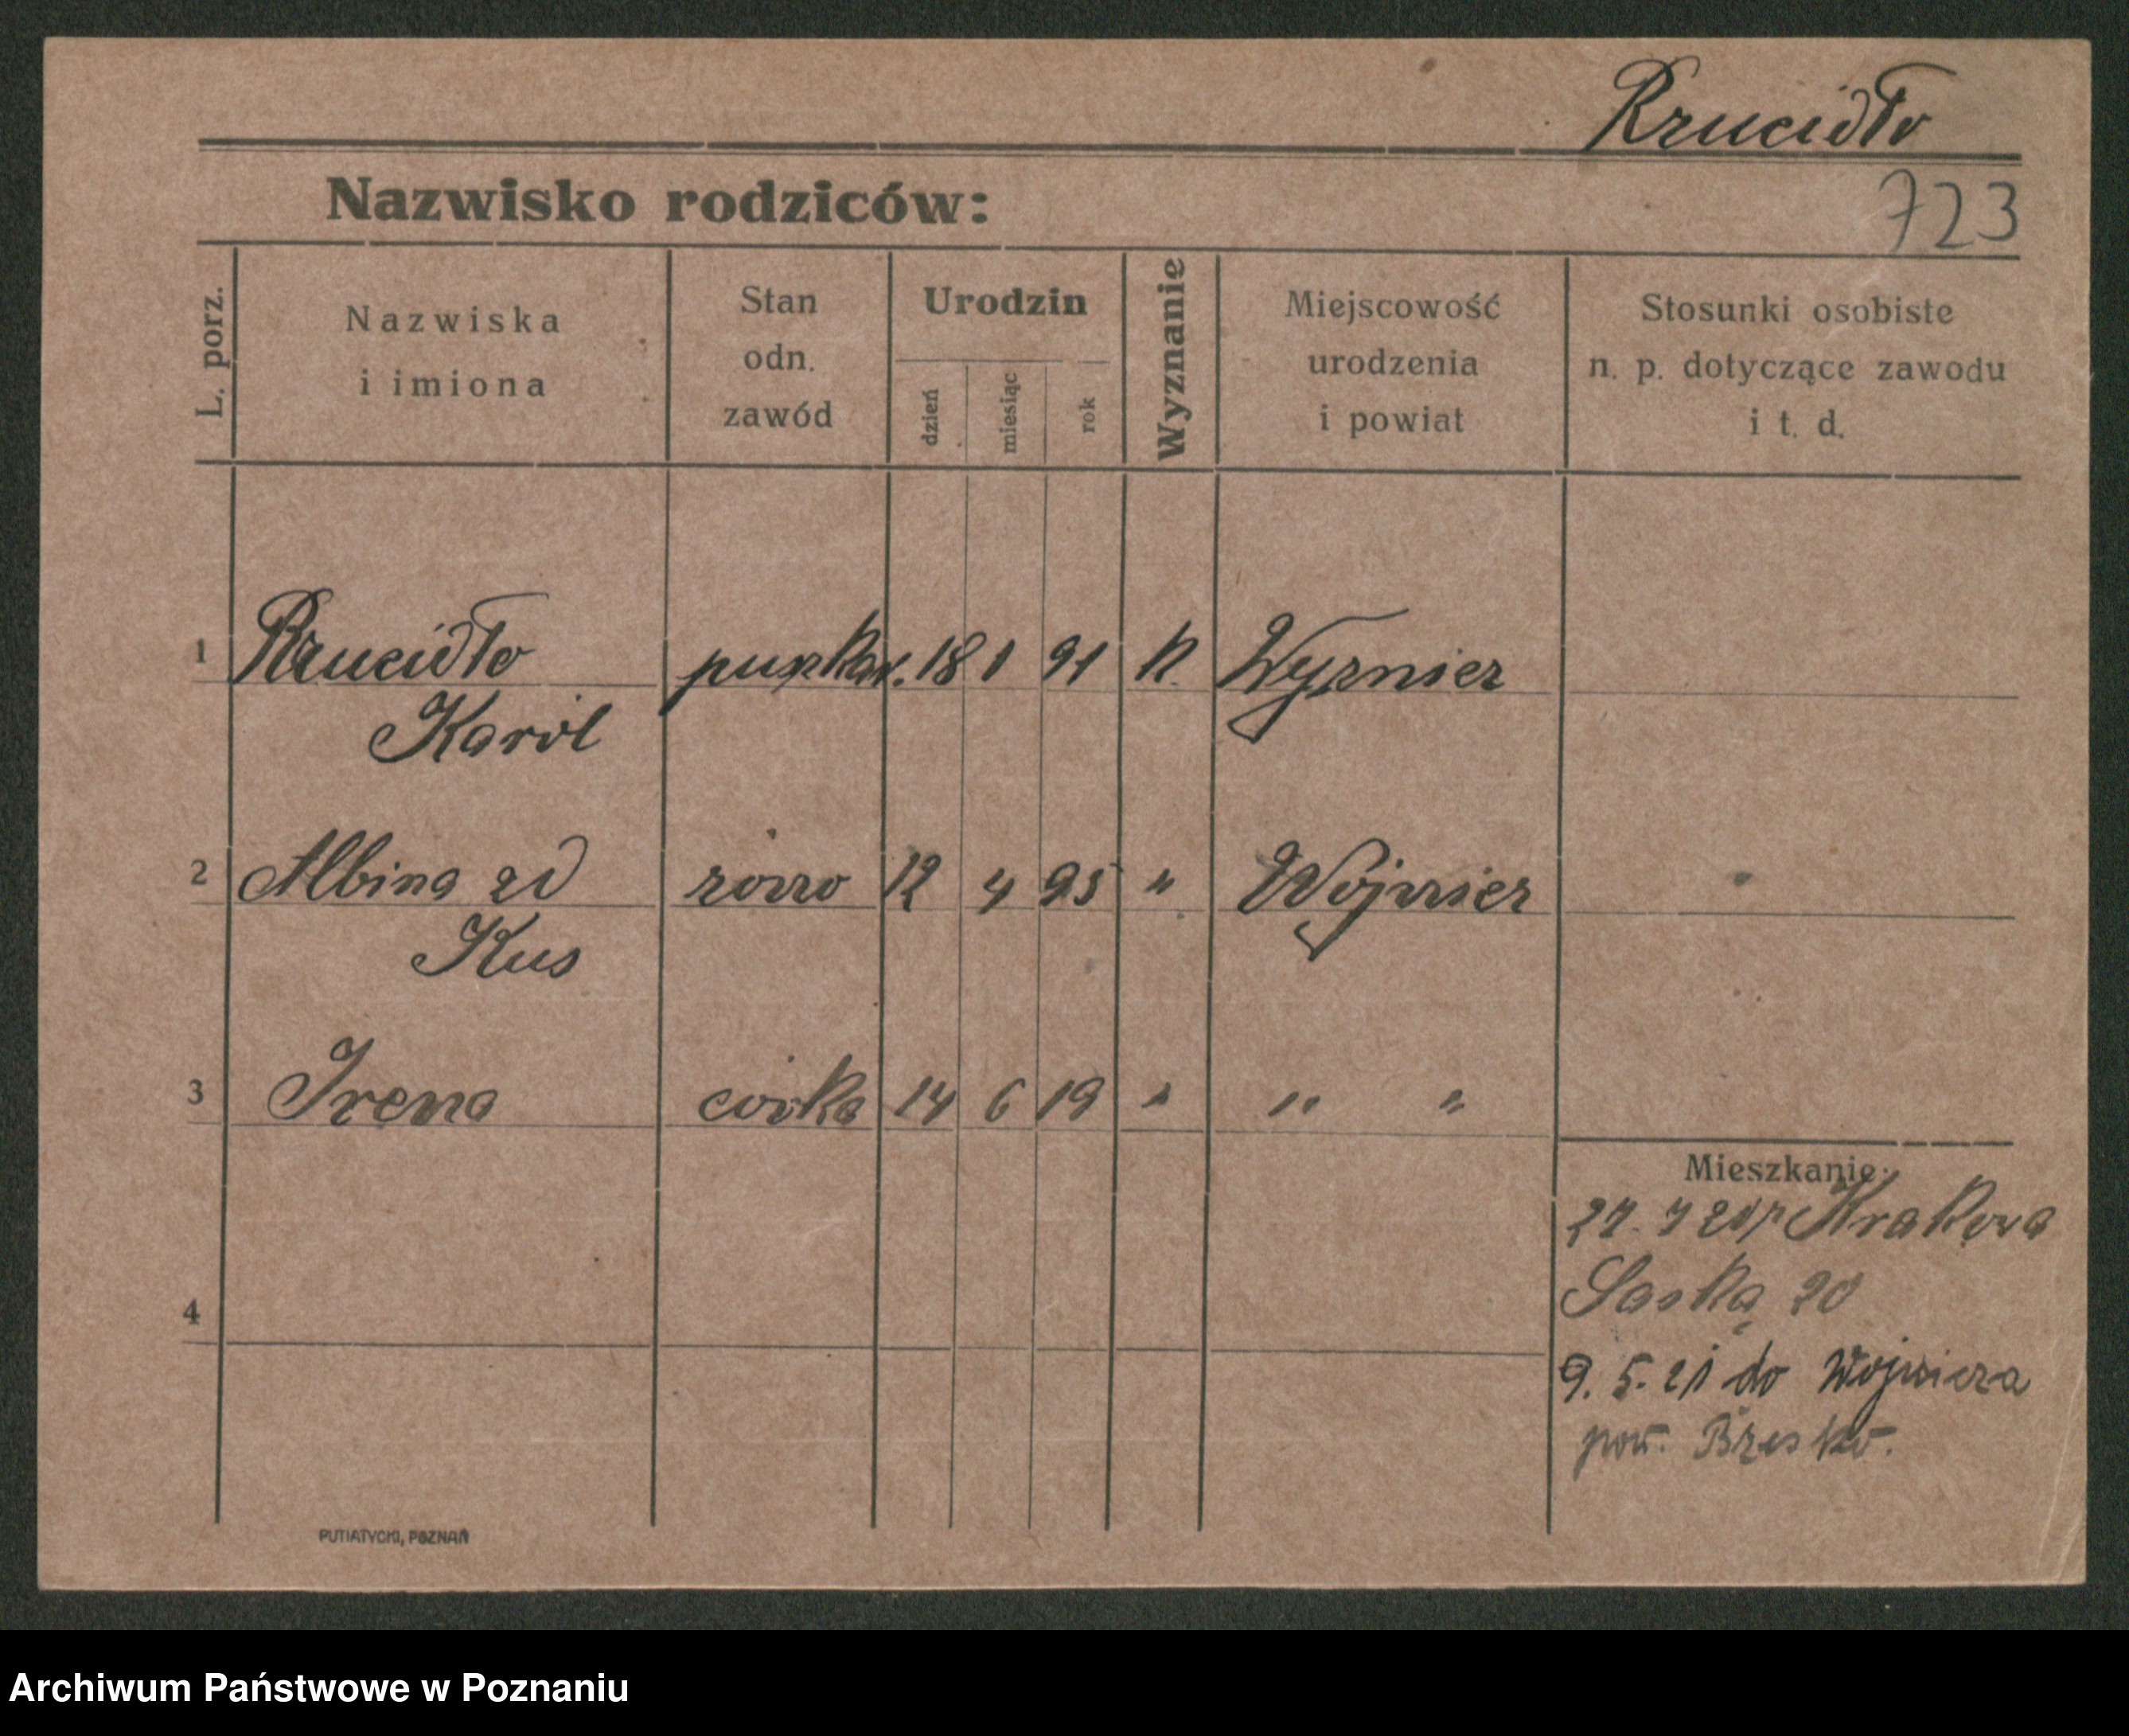 Rzucidło
Nazwisko rodziców:
723
L. porz.
Nazwiska
i imiona
Stan
odn.
zawód
Urodzin
dzień
miesiąc
rok
Wyznanie
Miejscowość
urodzenia
i powiat
Stosunki osobiste
n. p. dotyczące zawodu
i t. d.
1 Rzucidło 18 1 91 K
Karol
2 Albina zd żona 12 4 95 " Wojnicz
Kus
3 Irena córka 14 6 19 " " "
Mieszkanie:
Krakowa
Saska 20
4
9. 5. 21 do Wojnicza
pow. Brzesko.
PUTIATYCKI, POZNAŃ
Archiwum Państwowe w Poznaniu